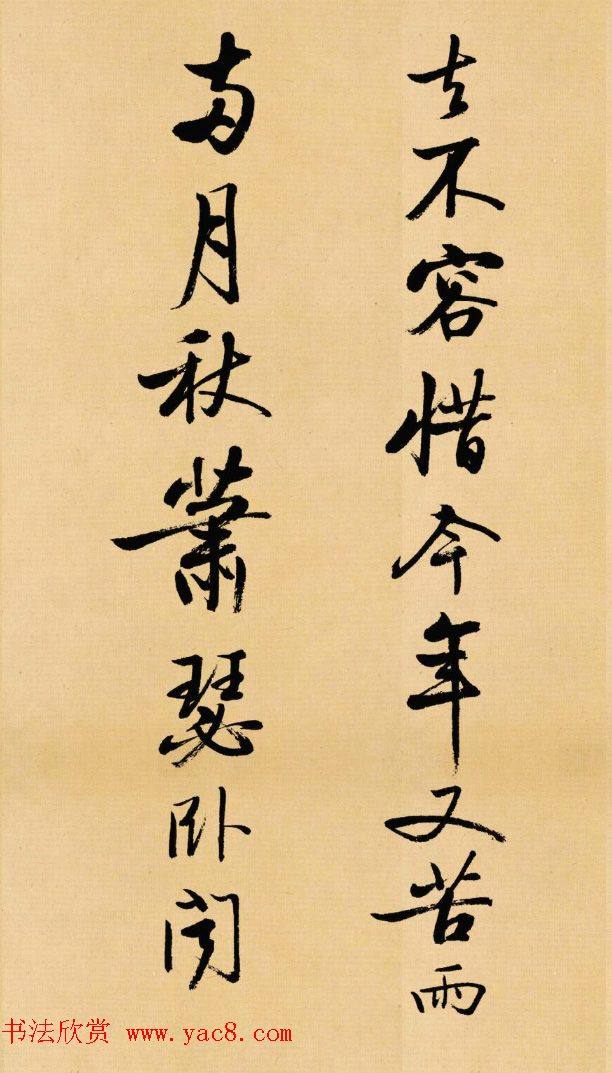 去不容惜今年又苦雨
兩月秋蕭瑟卧聞
书法欣赏 www.yac8.com